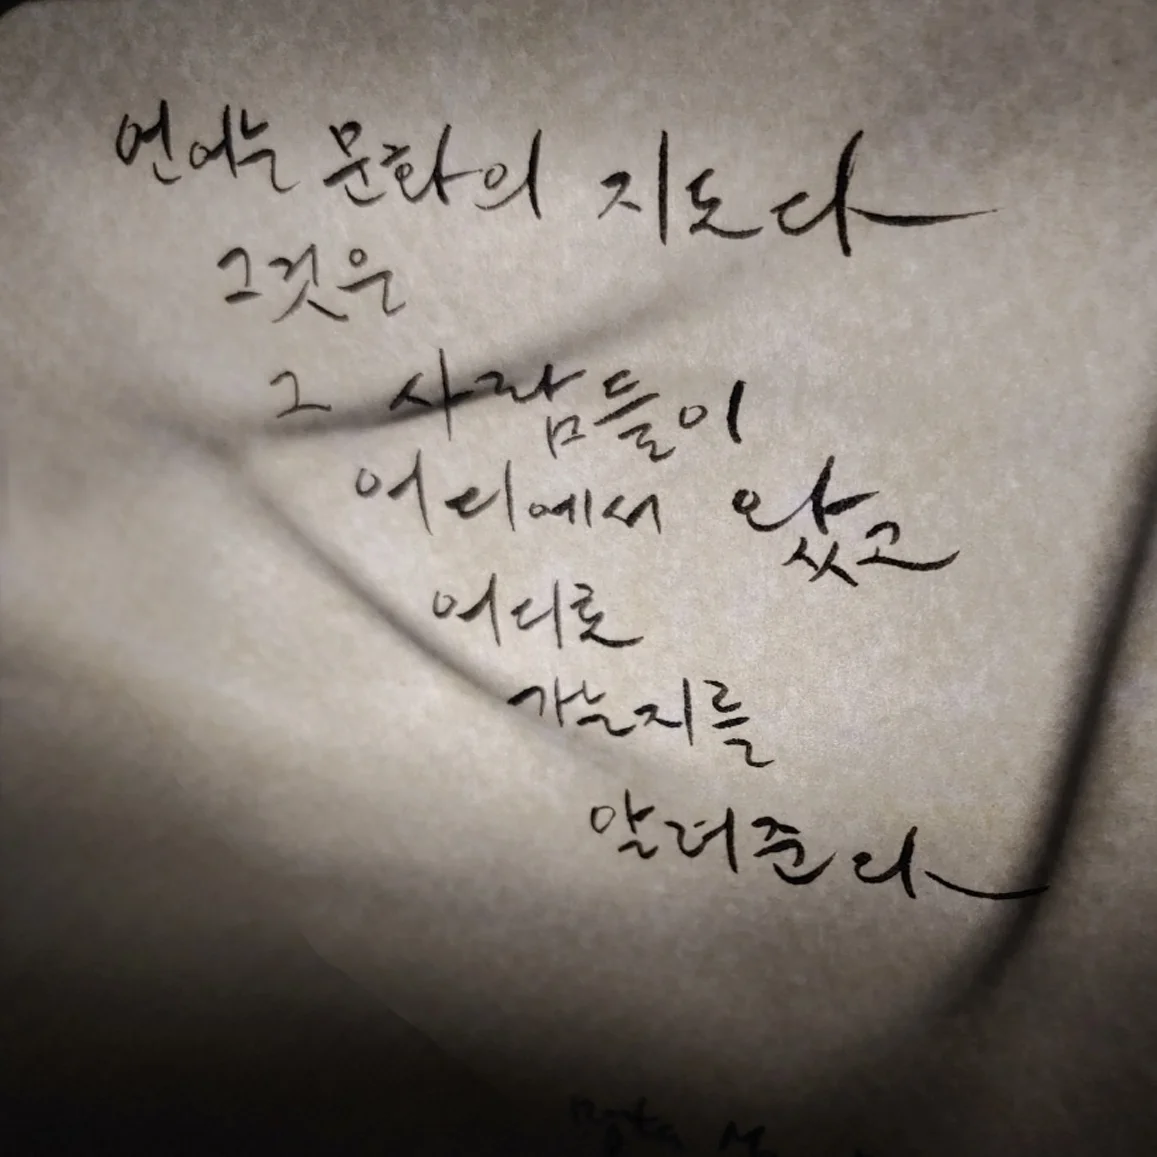 언어는 문화의 지도다
그것은
그 사람들이
어디에서 왔고
어디로
가는지를
알려준다